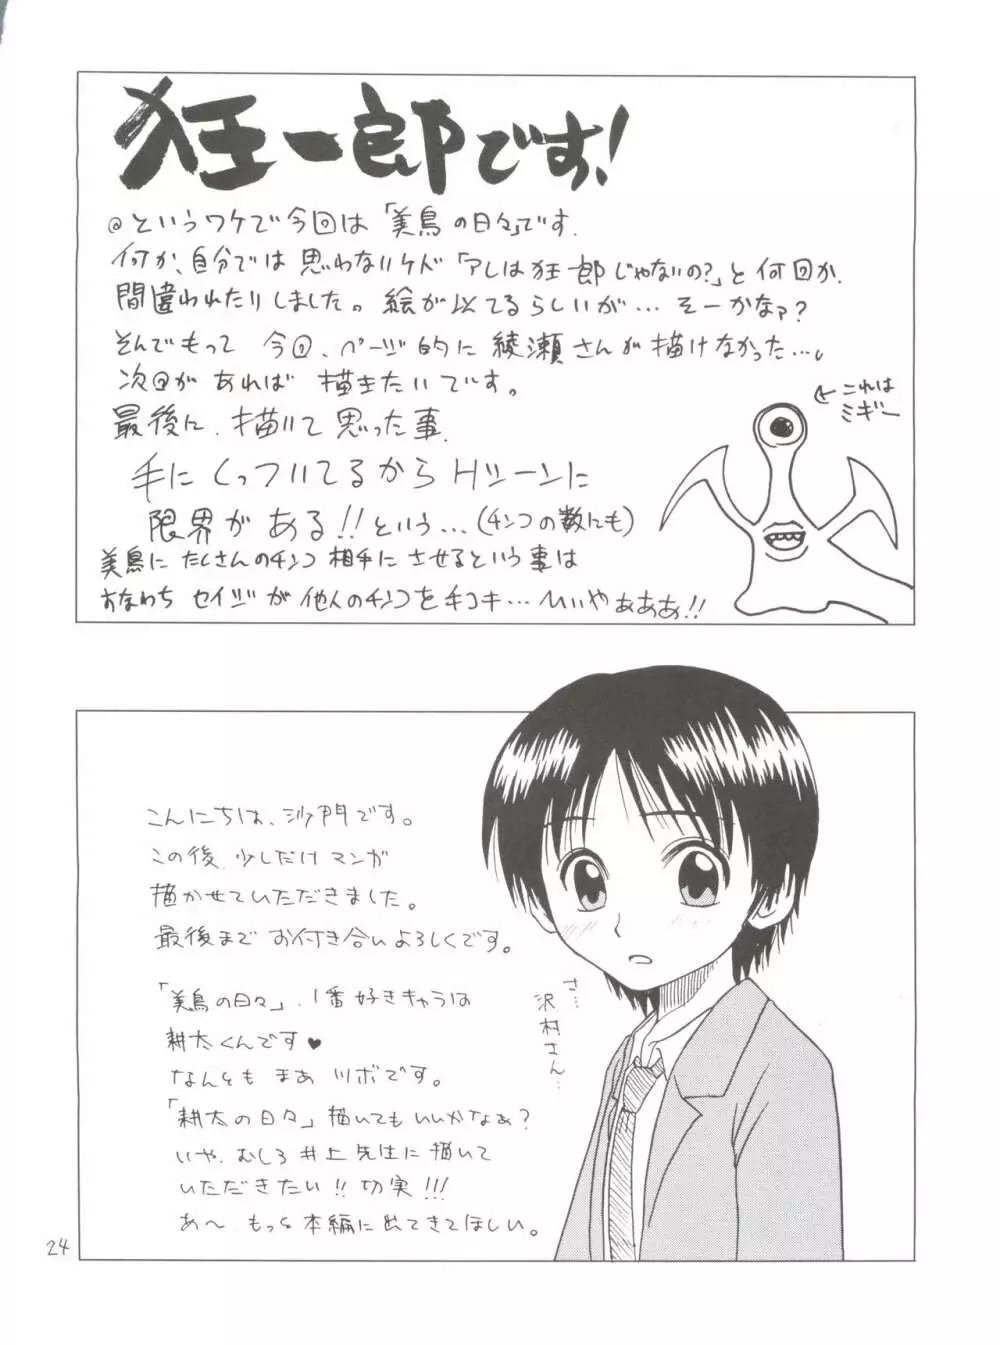 狂一郎です!
@というワケで今回は「美鳥の日々」です.
何か、自分では思わないケド「アレは狂一郎じゃないの?」と何回か、
間違われたりしました。絵が似てるらしいが… そーかなァ?
そんでもって 今回、ページ的に 綾瀬さんが描けなかった…。
次回が あれば 描きたいです。
最後に、描いて思った事、
手にくっついてるからHシーンに
限界がある!!という…(チンコの数にも)
美鳥に たくさんのチンコ相手に させるという事は
すなわち セイジが他人のチンコを手コキ…ひいやぁああ!!
←これは
ミギー
こんにちは、沙門です。
この後、少しだけ マンガ
描かせていただきました。
最後まで お付き合い よろしくです。
「美鳥の日々」、1番好きキャラは
耕太くんです♥
なんとも まあ ツボです。
「耕太の日々」描いても いいかなぁ?
いや、むしろ 井上先生に描いて
いただきたい!!切実!!!
あ〜 もっと 本編に出てきてほしい。
さ…
沢村さん…
24